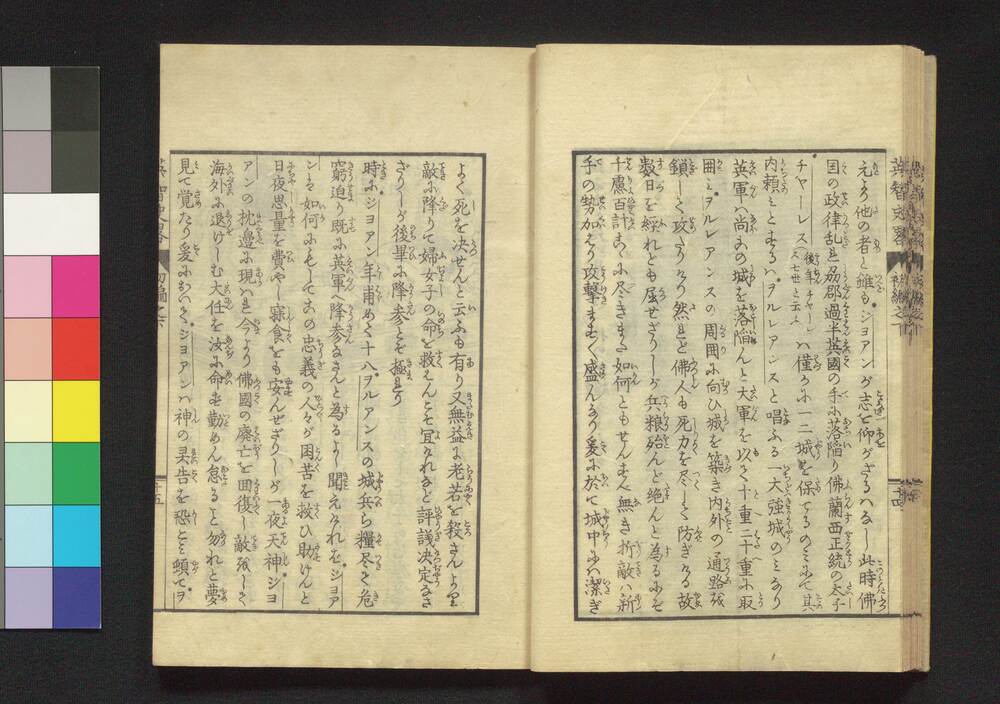 元より他の者と雖も。ジョアンダ志を仰ガざるハなし此時佛
国の政律乱且刕郡過半英國の手に落陥り佛蘭西正統の太子
チャーレス 後年チャーレス七世と云ふ ハ僅かに一二城を保てるのミにて其
内頼ミとするハ。ヲルレアンスと唱ふる一大強城のミなり
英軍ハ尚この城を落陥んと大軍を以て十重二十重に取
囲ミ。ヲルレアンスの周囲に向ひ城を築き内外の通路を
鎖して攻たりける然れど佛人も死力を尽して防ぎける故
数日を経れとも屈せざりしが兵粮殆んど絶んと為るにぞ
十慮百計こゝに尽きまた如何ともせんすべ無き折敵ハ新
手の勢加はり攻撃ますます盛んなり爰に於て城中にハ潔ぎ
よく死を決せんと云ふも有り又無益に老若を殺さんより
敵に降りて婦女子の命を救はんこそ宜けれなど評議決定なさ
ざりしが後畢に降参とぞ極まりぬ
時にジョアン年甫めて十八。ヲルアンスの城兵ら糧尽き危
窮迫り既に英軍へ降参なさんと為るよし聞えければ。ジョア
ンは如何にもしてこの忠義の人々が困苦を救ひ助けんと
日夜思量を費やし寐食をも安んぜざりしが一夜天神。ジヨ
アンの枕邊に現ハれ今より佛國の廃亡を回復し敵をして
海外に退けしむ大任を汝に命ぜ勤めん怠ること勿れと夢
見て覚たり爰において。ジョアンハ神の杲告を恐とミ頓て。ヲ